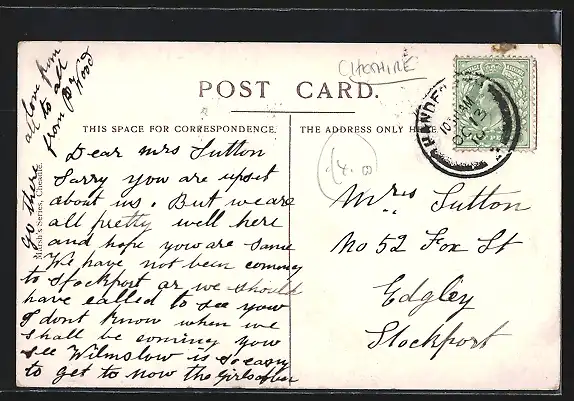 CHESHIRE
POST CARD.
THIS SPACE FOR CORRESPONDENCE.
THE ADDRESS ONLY HERE
HANDFO
10 AM
OC 13
Dear Mrs Sutton
Sorry you are upset
about us. But we are
all pretty well here
and hope you are same
We have not been coming
to Stockport or we should
have called to see yow
I dont know when we
shall be coming yow
see Wilmslow is so easy
to get to now the Girls often
go there
all love from
to all
from B Hood
Marsh's Series, Cheadle.
Mrs Sutton
No 52 Fox St
Edgley
Stockport